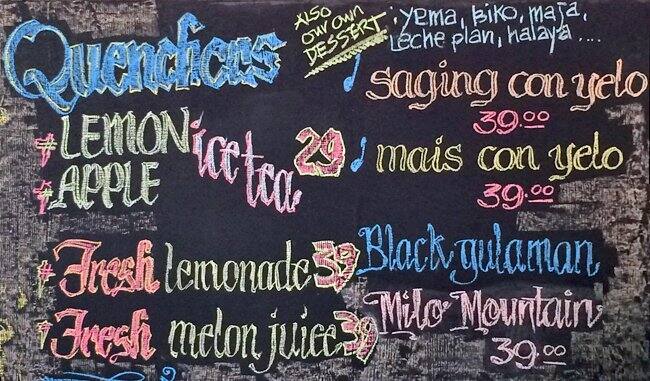 Quenchers
ALSO
our own
DESSERT
: yema, biko, maja,
Leche plan, halaya ....
# LEMON
# APPLE
ice tea 29
# Fresh lemonade 39
Fresh melon juice 39
saging con yelo
39.00
mais con yelo
39.00
Black gulaman
Milo Mountain
39.00